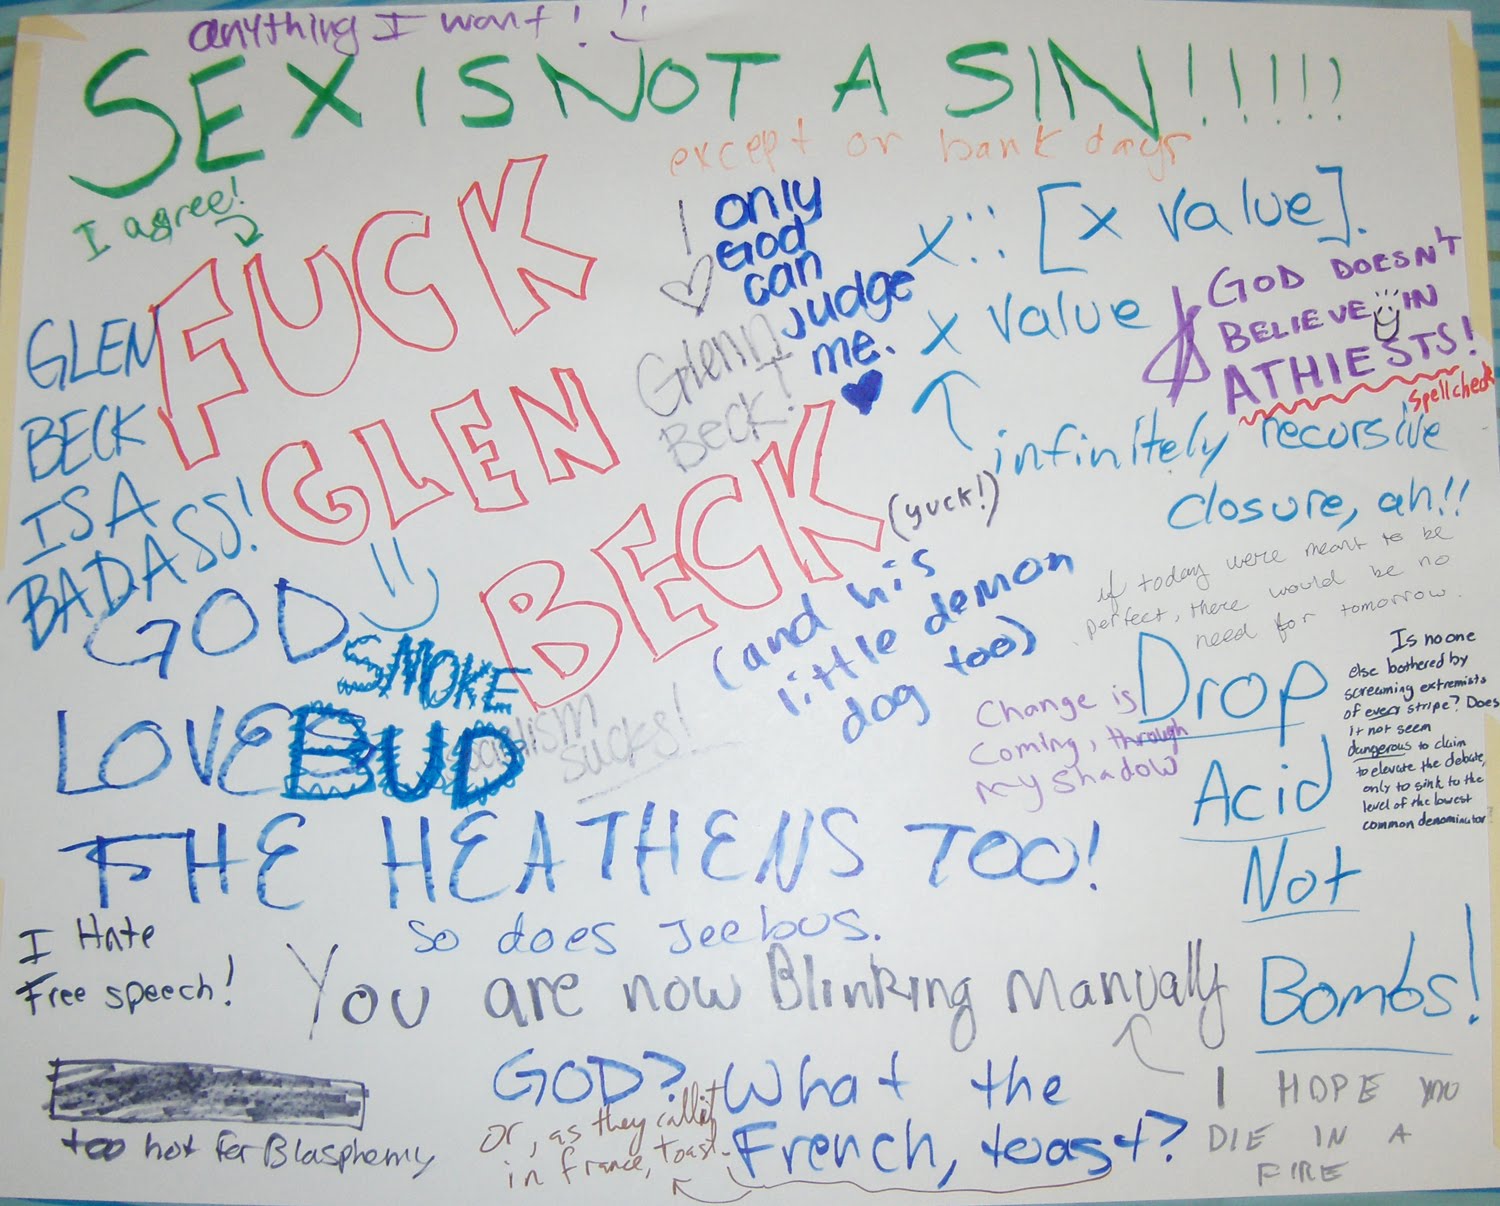 anything I want!
SEX IS NOT A SIN!!!!!
except or bank days
I agree!
FUCK
GLEN
BECK
I
Glenn
Beck!
only
God
can
judge
me.
x:: [x value].
x value
infinitely recursive
closure, ah!!
GOD DOESN'T
BELIEVE IN
ATHIESTS!
Spellcheck
GLEN
BECK
IS A
BADASS!
(yuck!)
(and his
little demon
dog too)
if today were meant to be
perfect, there would be no
need for tomorrow.
GOD
LOVES
THE HEATHENS TOO!
SMOKE
BUD
Socialism
sucks!
Change is
coming, through
my shadow
Drop
Acid
Not
Bombs!
Is no one
else bothered by
screaming extremists
of every stripe? Does
it not seem
dangerous to claim
to elevate the debate,
only to sink to the
level of the lowest
common denominator?
So does Jeebus.
I Hate
Free speech!
You are now Blinking Manually
I HOPE YOU
DIE IN A
FIRE
too hot for Blasphemy
GOD? What the
French, toast?
or, as they call it
in France, toast.